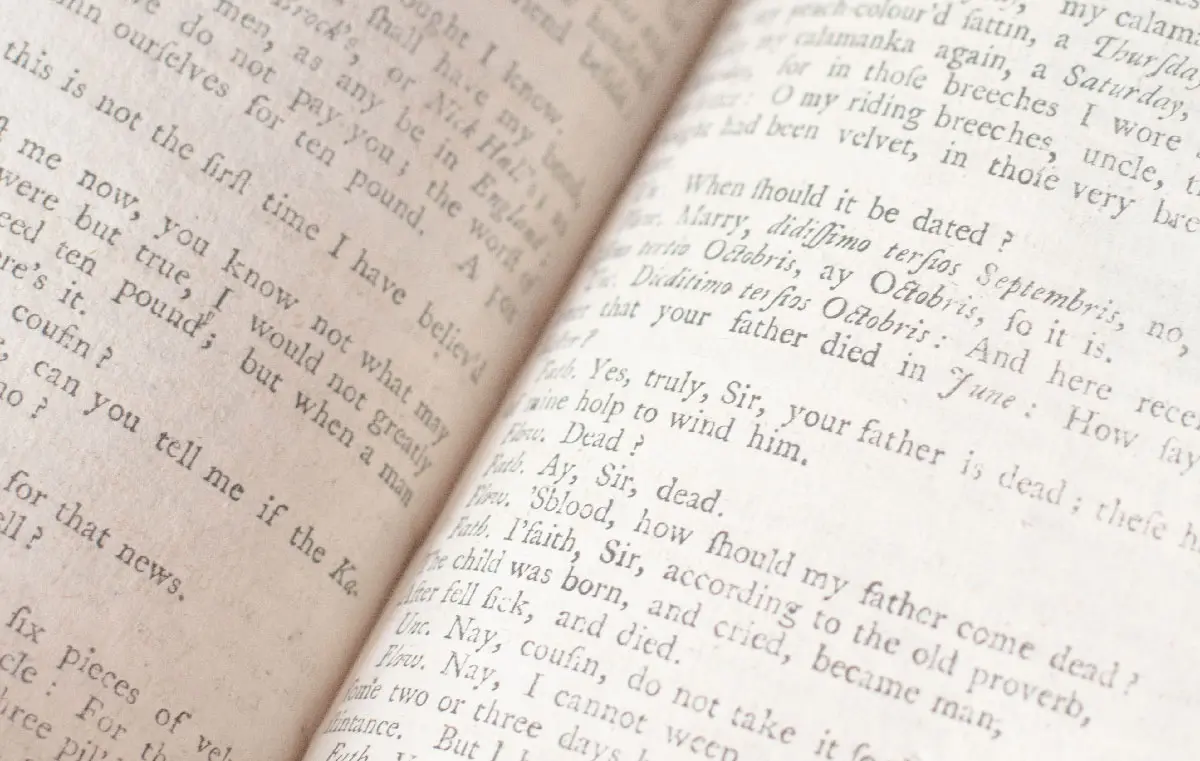 ought I know.
ſhall have my bond,
Brock's, or Nick Hal's
men, as any be in England:
do not pay you; the worſt of
ourſelves for ten pound. A
this is not the firſt time I have believ'd
me now, you know not what may
were but true, I would not greatly
ten pound; but when a man
it.
couſin?
can you tell me if the Ka-
for that news.
ſix pieces of
For
my
peach-colour'd ſattin, a Thurſday
my calamanka again, a Saturday,
for in thoſe breeches I wore
O my riding breeches, uncle,
had been velvet, in thoſe very
When ſhould it be dated?
Marry, didiſſimo terſios Septembris, no,
tertio Octobris, ay Octobris, ſo it is.
Unc. Dicditimo terſios Octobris: And here
that your father died in June: How ſay
Fath. Yes, truly, Sir, your father is dead; theſe
mine holp to wind him.
Flow. Dead?
Fath. Ay, Sir, dead.
Flow. 'Sblood, how ſhould my father come dead?
Fath. I'faith, Sir, according to the old proverb,
The child was born, and cried, became man,
After fell ſick, and died.
Unc. Nay, couſin, do not take it ſo
Flow. Nay, I cannot weep
ſome two or three days
But I
Fath.